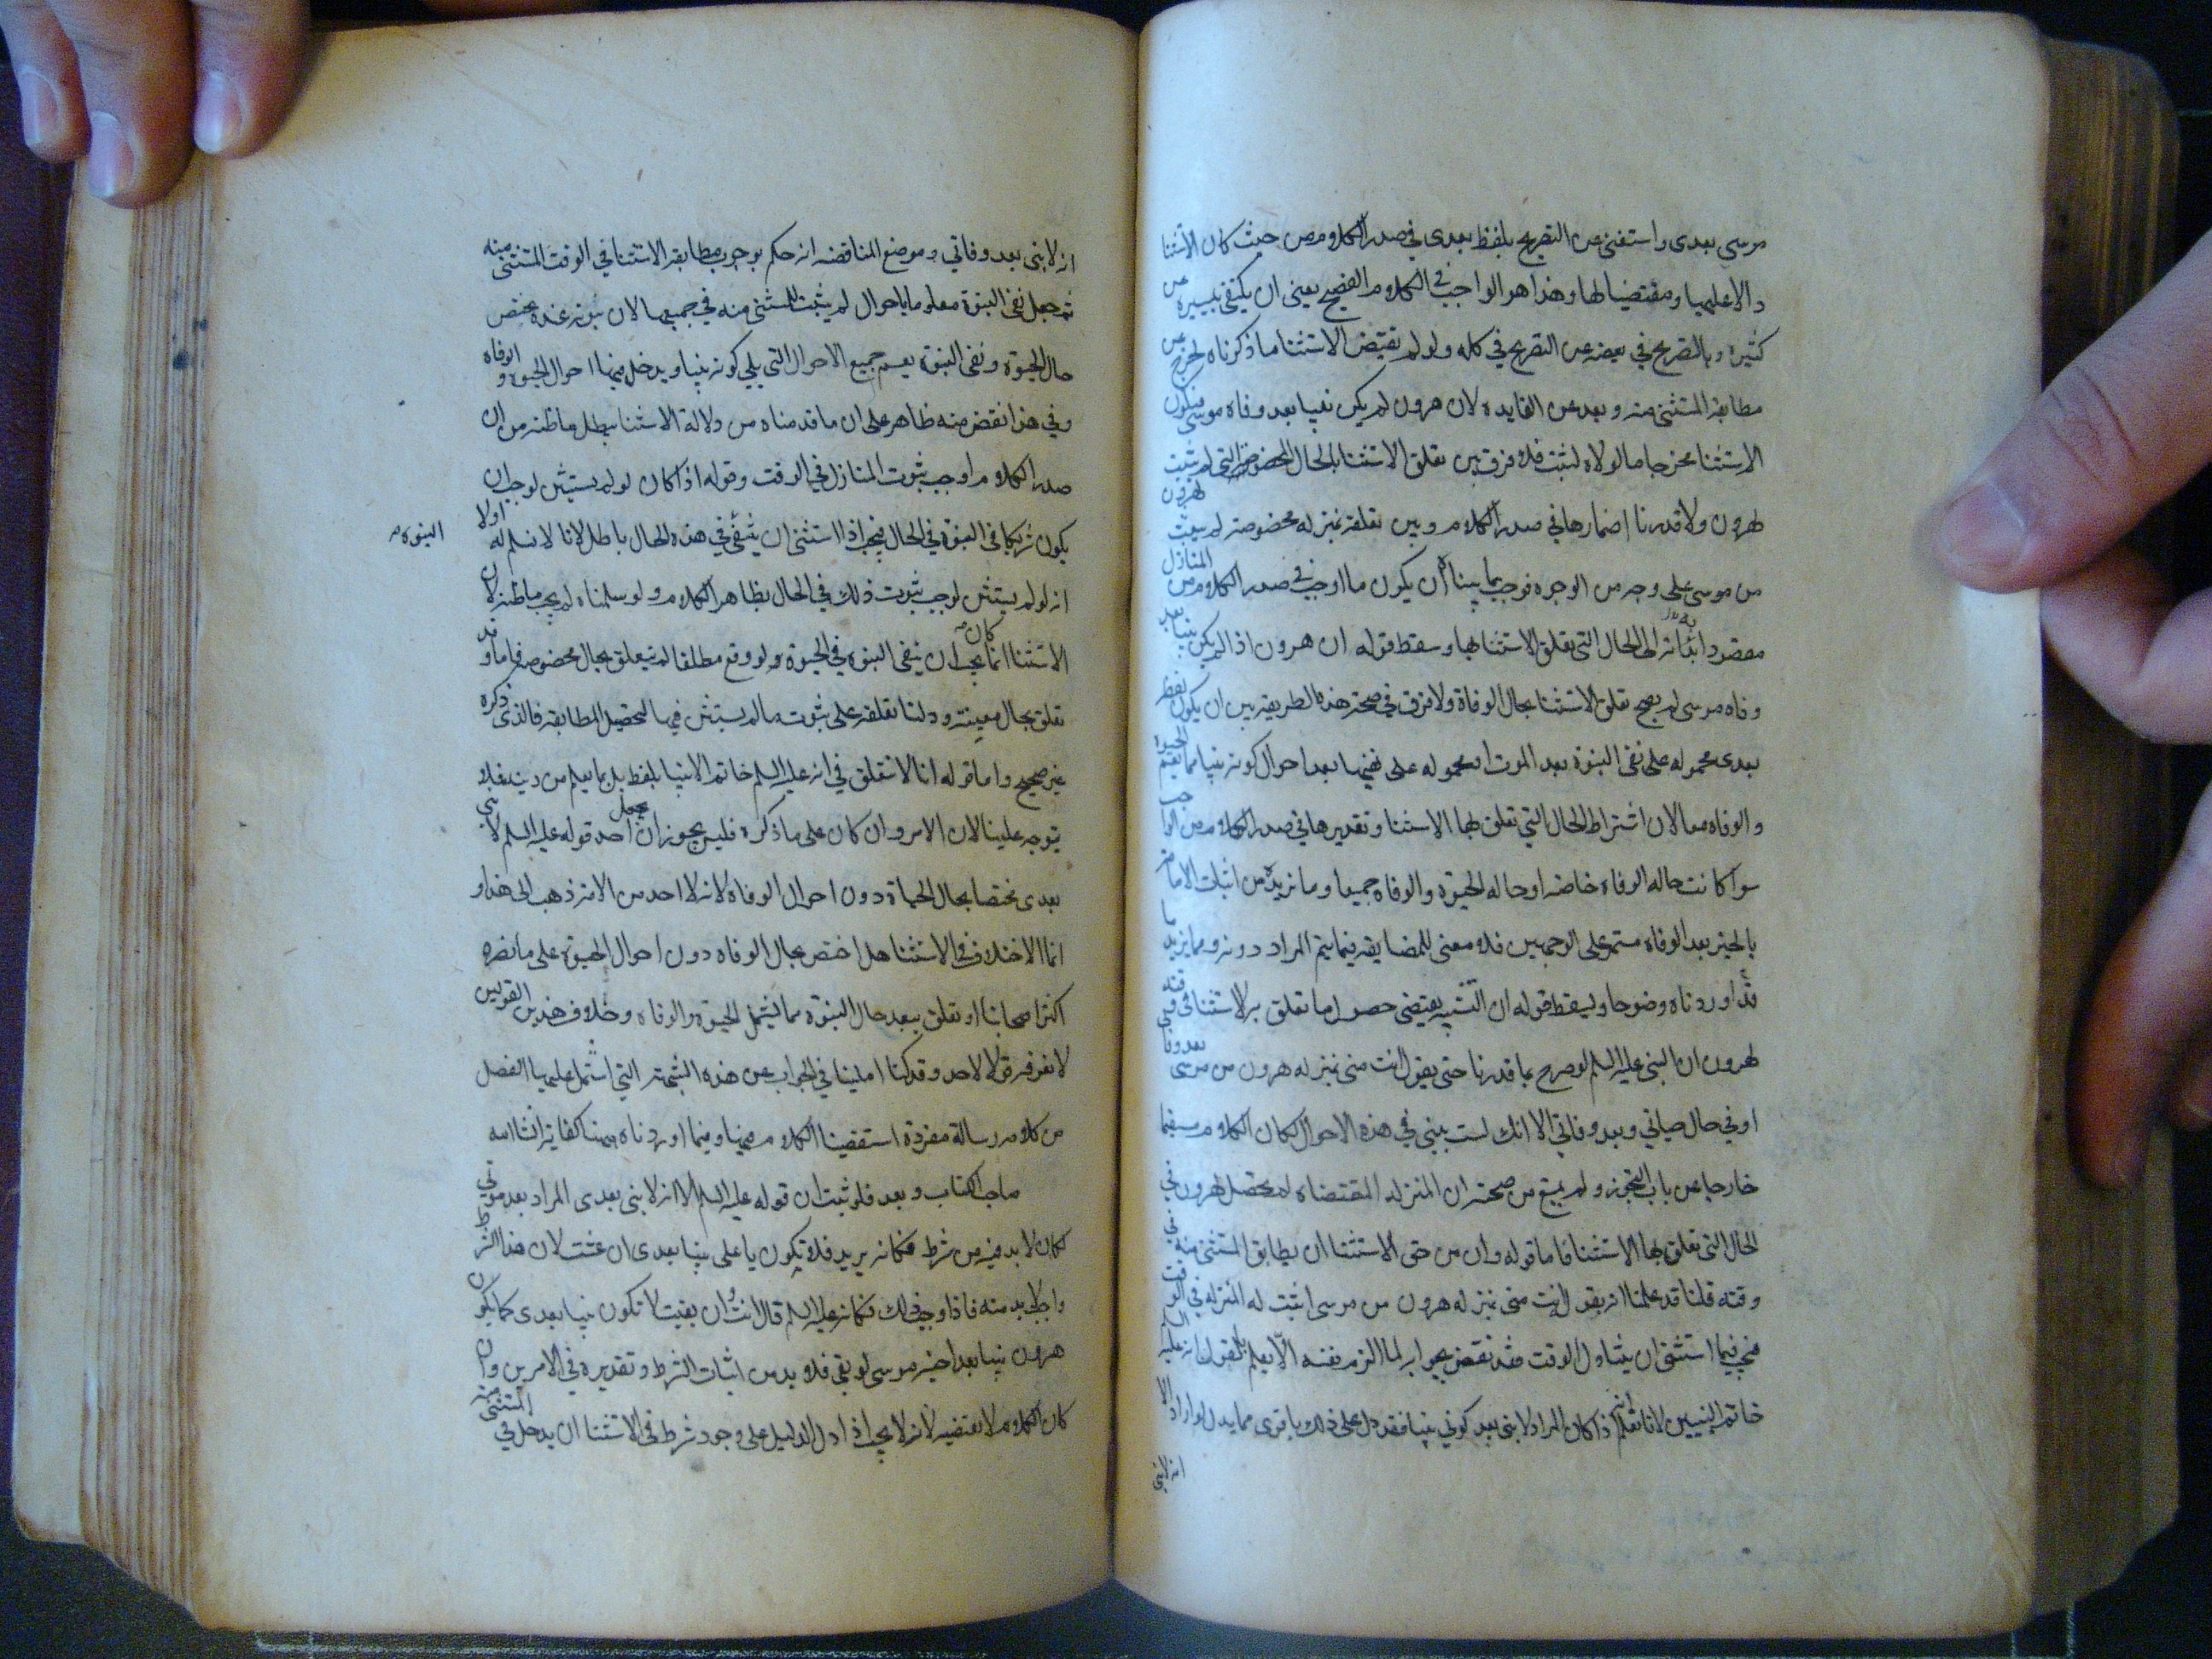 موسى بعدى واستغنى عن التصريح بلفظ بعدى في صدر الكلام من حيث كان الاستثنا
دالا عليها ومقتضيا لها وهذا هو الواجب في الكلام الفصيح يعنى ان يكتفى بيسيره عن
كثيره وبالتصريح في بعضه عن التصريح في كله ولو لم تقتض الاستثنا ما ذكرناه لخرج عن
مطابقة المستثنى منه وبعد عن الفايده لان هرون لم يكن نبيا بعد وفاه موسى فيكون
الاستثنا مخرجا ما لولاه لثبت فلا فرق بين تعلق الاستثنا بالحال المخصوصه التي لم يثبت
لهرون ولا قدرنا اضمارها في صدر الكلام وبين تعلقه بمنزله مخصوصه لم يثبت لهرون
من موسى على وجه من الوجوه فوجب بما بيناه ان يكون ما اوجب في صدر الكلام من المنازل
مقصودا به الى الحال التى تعلق الاستثنا بها وسقط قوله ان هرون اذا لم يكن نبيا بعد
وفاه موسى لم يصح تعلق الاستثنا بحال الوفاة ولا فرق في صحة هذه الطريقه بين ان يكون لفظ
بعدى محموله على نفى النبوة بعد الموت او محموله على نفيها بعد احوال كونه نبيا مما يعم الحيوة
والوفاه معا لان اشتراط الحال التي تعلق بها الاستثنا وتقديرها في صدر الكلام من الواجب
سوا كانت حاله الوفاه خاصه او حاله الحيوة والوفاه جميعا وما نريده من اثبات الامامة
بالخبر بعد الوفاه مستمر على الوجهين فلا معنى للمضايقه فيما يتم المراد دونه ومما يزيد ما
قد اوردناه وضوحا ويسقط قوله ان التشبيه يقتضى حصول ما تعلق به الاستثنا في وقته
لهرون ان النبى عليه السلم لو صرح بما قدرنا حتى يقول انت منى بمنزله هرون من موسى بعد وفاتى
او في حال حياتي وبعد وفاتي الا انك لست بنبى في هذه الاحوال لكان الكلام مستقيما
خارجا عن باب التجوز ولم يمنع من صحته ان المنزله المقتضاه لم يحصل لهرون في
الحال التى تعلق بها الاستثنا فاما قوله وان من حق الاستثنا ان يطابق المستثنى منه في
وقته قلنا قد علمنا انه بقوله انت منى بمنزله هرون من موسى اثبت له المنزله في الوقت
فيجب فيما استثنى ان يتناول الوقت فقد نقض بجوابه لما الزم نفسه الا يعلم بقوله انه عليه السلم
خاتم النبيين لانا نعلم انه اذا كان المراد لا نبى بعد كوني نبيا فقد دل على ذلك باقوى مما يدل لو اراد الا
انه لا نبى
انه لا نبى بعد وفاتي وموضع المناقضه انه حكم بوجوب مطابقه الاستثنا في الوقت المستثنى منه
ثم جعل نفى النبوة معلوما باحوال لم يثبت المستثنى منه في جميعها لان ثبوته عنده مختص
حال الحيوة ونفى النبوة يعم جميع الاحوال التى يلى كونه نبيا ويدخل فيها احوال الحيوه والوفاه
وفي هذا نقض منه ظاهر على ان ما قدمناه من دلالة الاستثنا يبطل ما ظنه من ان
صدر الكلام اوجب ثبوت المنازل في الوقت وقوله اذا كان لو لم يستثن لوجب ان
يكون شريكا في النبوة في الحال فيجب اذا استثنى ان ينتفى في هذه الحال باطل لانا لا نسلم له اولا
النبوه
انه لو لم يستثن لوجب ثبوت ذلك في الحال بظاهر الكلام ولو سلمناه لم يجب ما ظنه لان
الاستثنا انما كان يجب ان ينفى النبوة في الحيوة لو وقع مطلقا لم يتعلق بحال مخصوصه فاما وقد
تعلق بحال معينة ودلنا تعلقه على ثبوت ما لم يستثن فيها لتحصيل المطابقه فالذى ذكره
غير صحيح واما قوله انا لا نتعلق في انه عليه السلم خاتم الانبيا بلفظ بل بما يعلم من دينه فلا
يتوجه علينا لان الامر وان كان على ما ذكره فليس يجوز ان يحمل احد قوله عليه السلم لا نبى
بعدى مختصا بحال الحياة دون احوال الوفاة لانه لا احد من الامة ذهب الى هذا و
انما الاختلاف في الاستثنا هل اختص بحال الوفاه دون احوال الحيوة على ما نصره
اكثر اصحابنا او تعلق ببعد حال النبوة مما يشمل الحيوة والوفاه وخلاف هذين القولين
لا نعرفه قولا لاحد وقد كنا املينا في الجواب عن هذه الشبهة التي اشتمل عليها الفصل
من كلامه رسالة مفردة استقصينا الكلام فيها وفيما اوردناه ههنا كفاية انشا الله
صاحب الكتاب وبعد فلو ثبت ان قوله عليه السلم الا انه لا نبى بعدى المراد بعد موتي
لكان لا بد فيه من شرط فكانه يريد فلا تكون يا على نبيا بعدى ان عشت لان هذا الشرط
واجب لا بد منه فاذا وجب ذلك فكانه عليه السلم قال انت وان بقيت لا تكون نبيا بعدى كما يكون
هرون نبيا بعد اخيه موسى لو بقى فلا بد من اثبات الشرط وتقديره في الامرين وان
كان الكلام لا يقتضيه لانه لا يجب اذا دل الدليل على وجود شرط في الاستثنا ان يدخل في المستثنى منه